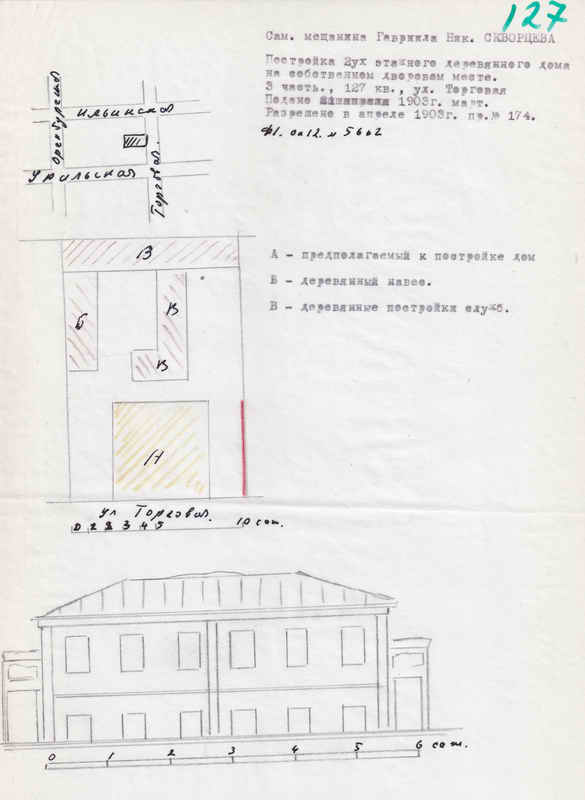 127
Сам. мещанина Гавриила Ник. СКВОРЦЕВА
Постройка 2ух этажного деревянного дома
на собственном дворовом месте.
3 часть., 127 кв., ул. Торговая
Подано 1903г. март.
Разрешено в апреле 1903г. пр.№ 174.
Ф1. оп12. д 5662
Оренбургская
Ильинская
Уральская
Торговая.
А - предполагаемый к постройке дом
Б - деревянный навес.
В - деревянные постройки служб.
В
Б
В
В
А
ул Торговая.
0 1 2 3 4 5 10 саж.
0 1 2 3 4 5 6 саж.